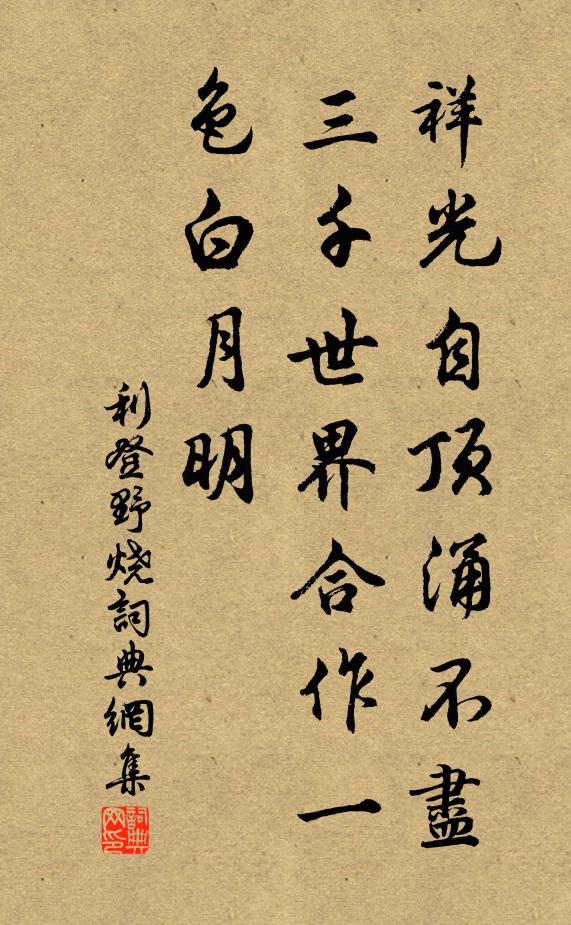 祥光自頂涌不盡
三千世界合作一
色白月明
利登野燒詞典網集
詞典网印